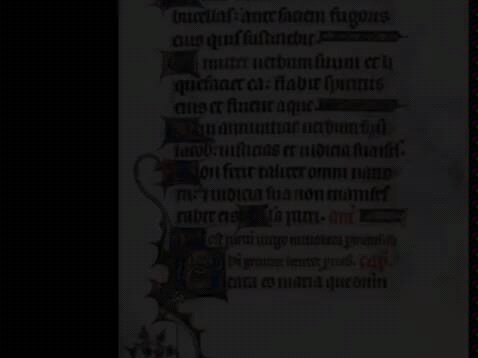 bucellas: ante faciem frigoris
eius quis sustinebit.
Emittet verbum suum et li
quefaciet ea: flabit spiritus
eius et fluent aque.
Qui annuntiat verbum suum
iacob: iusticias et iudicia sua isrl.
Non fecit taliter omni natio
ni: et iudicia sua non manifes
tavit eis. patri. ant
Post partum virgo inviolata permansisti
dei genitrix intercede pro nob. cap.
Beata es maria que dominum